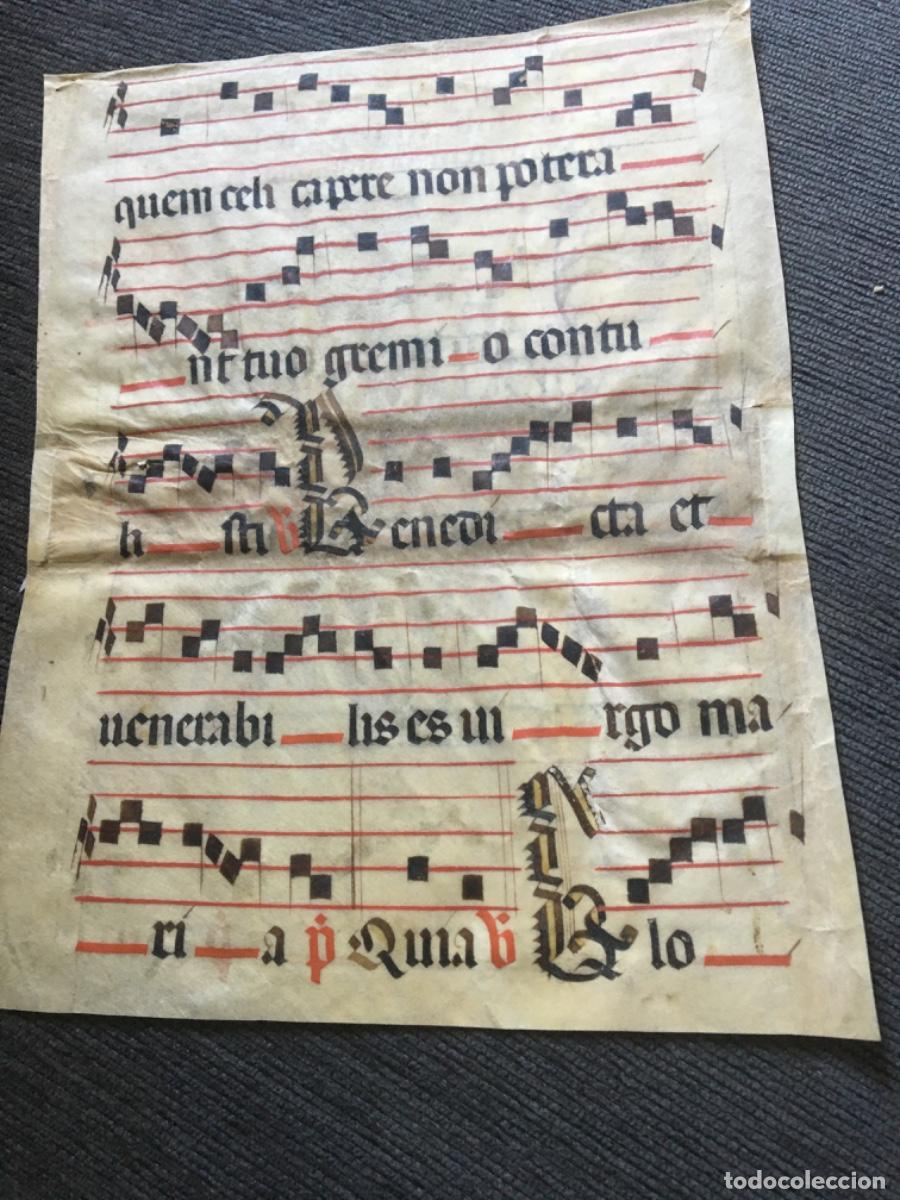 quem celi capere non potera
nt tuo gremi o contu
li sti V Benedi cta et
uenerabi lis es ui rgo ma
ri a p Quia V Glo
todocoleccion